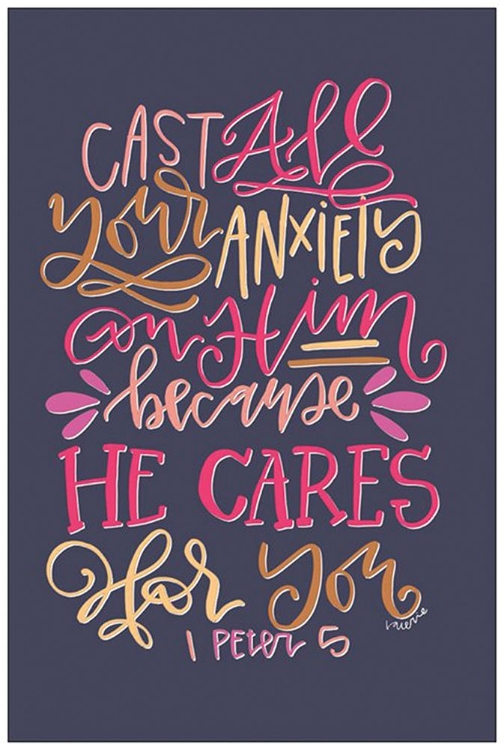 CAST All
your ANXIETY
on Him
because
HE CARES
for you
valerie
1 PETER 5